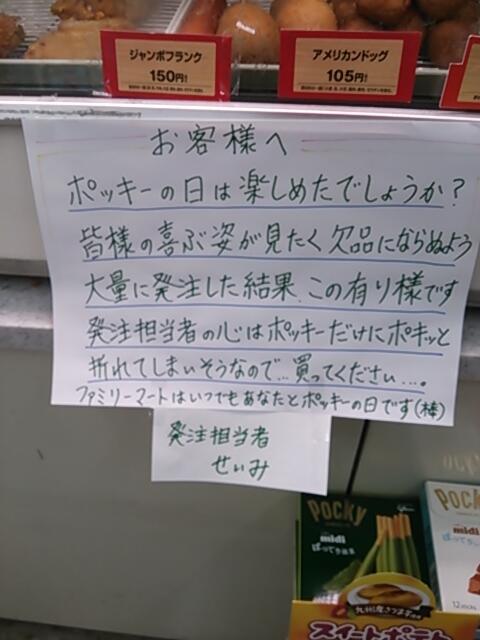 ジャンボフランク
150円!
アメリカンドッグ
105円!
お客様へ
ポッキーの日は楽しめたでしょうか?
皆様の喜ぶ姿が見たく欠品にならぬよう
大量に発注した結果、この有り様です
発注担当者の心はポッキーだけにポキッと
折れてしまいそうなので…買ってください…。
ファミリーマートはいつでもあなたとポッキーの日です(棒)
発注担当者
せいみ
POCKY
midi
glico
九州産さつま芋使用
スイートポテト
POCKY
midi